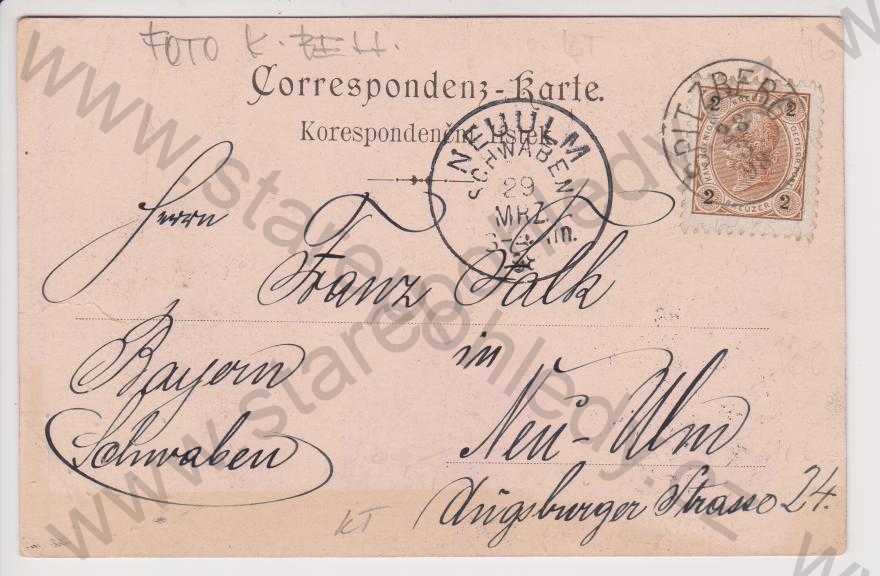 FOTO K.
KT
Correspondenz-Karte.
Korespondenční lístek
NEUULM
SCHWABEN
29
MRZ
SPITZBERG
2 2
2 KREUZER 2
Herrn
Franz Falk
in
Bayern
Schwaben
Neu-Ulm
Augsburger Strasse 24.
KT
www.starepohledy.cz